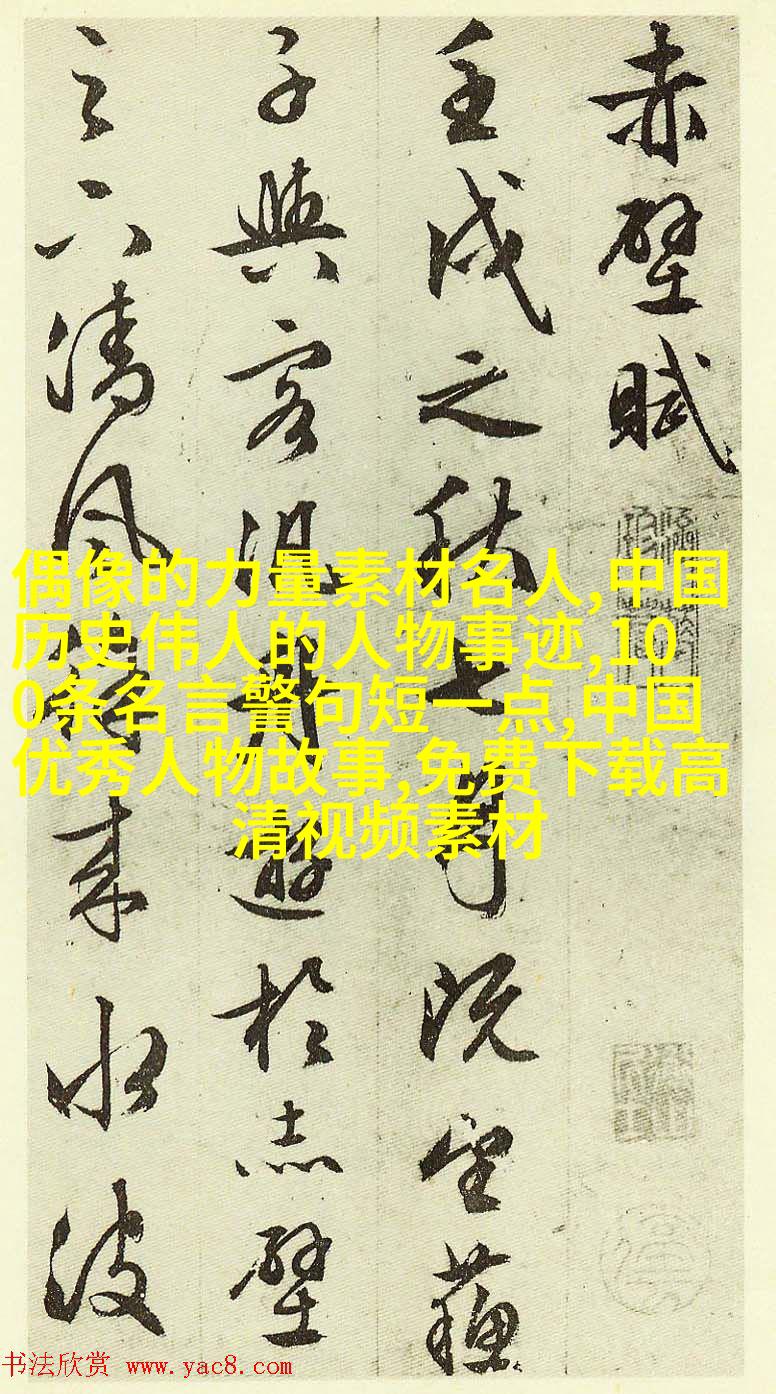 赤壁賦
壬戌之秋七月既望蘇
子與客泛舟遊於赤壁
之下清風徐来水波
偶像的力量素材名人,中国
历史伟人的人物事迹,10
0条名言警句短一点,中国
优秀人物故事,免费下载高
清视频素材
书法欣赏 www.yac8.com